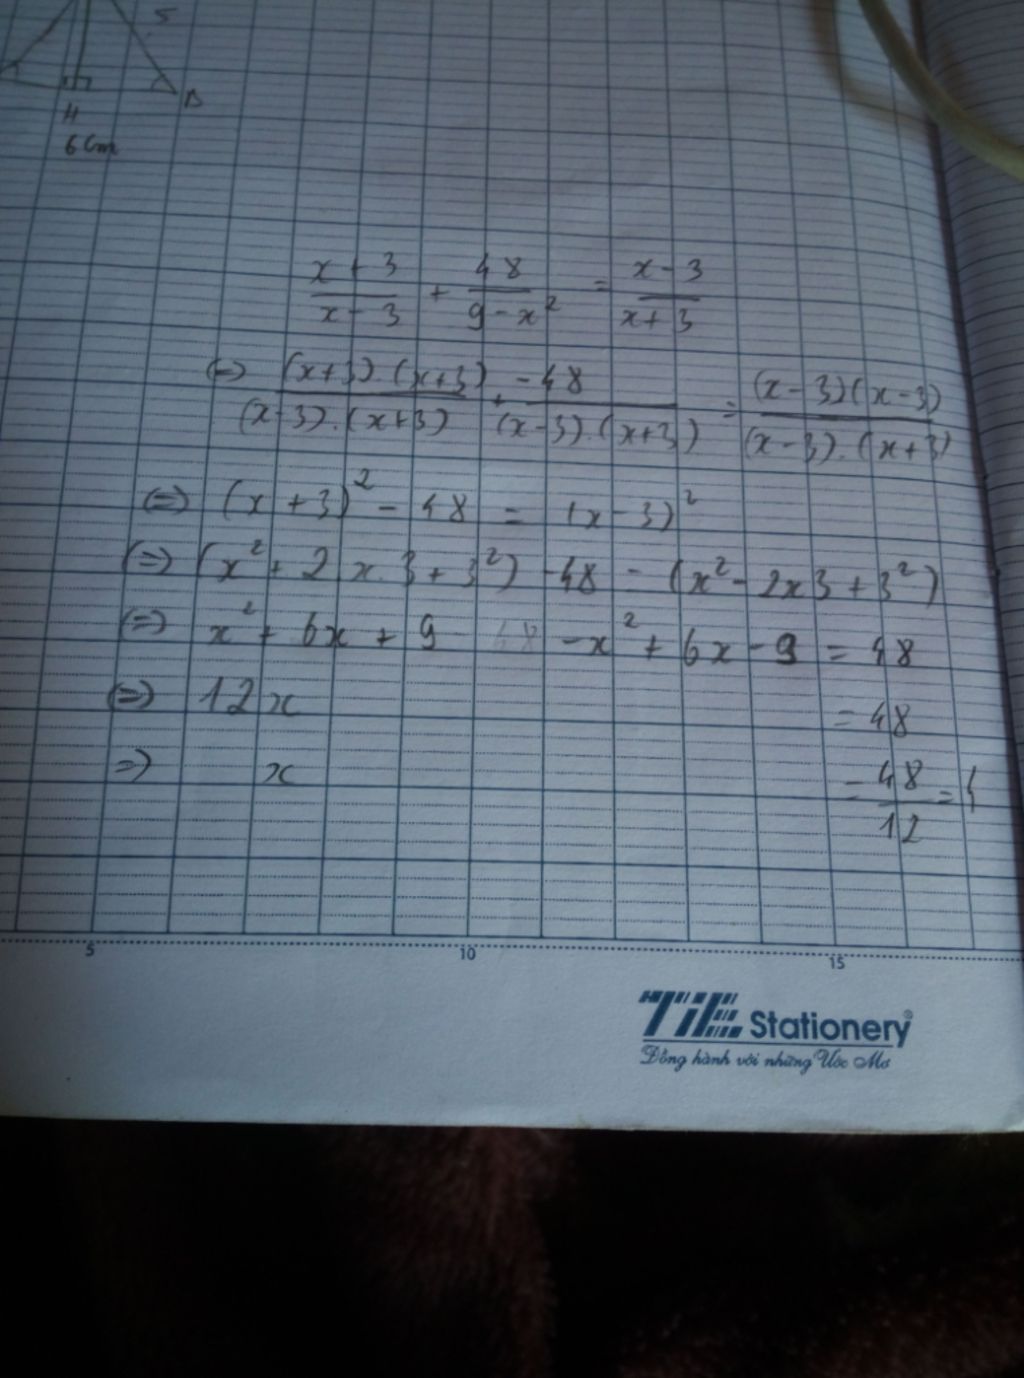 5
B
H
6 cm
x + 3 / x - 3 + 48 / 9 - x² = x - 3 / x + 3
(=) (x+3).(x+3) / (x-3).(x+3) + -48 / (x-3).(x+3) = (x-3)(x-3) / (x-3).(x+3)
(=) (x + 3)² - 48 = (x - 3)²
(=) (x² + 2 x.3 + 3²) - 48 - (x² - 2x3 + 3²)
(=) x² + 6x + 9 - 48 - x² + 6x - 9 = 48
(=) 12x = 48
=) x = 48 / 12 = 4
5 10 15
TiE Stationery®
Đồng hành với những Ước Mơ